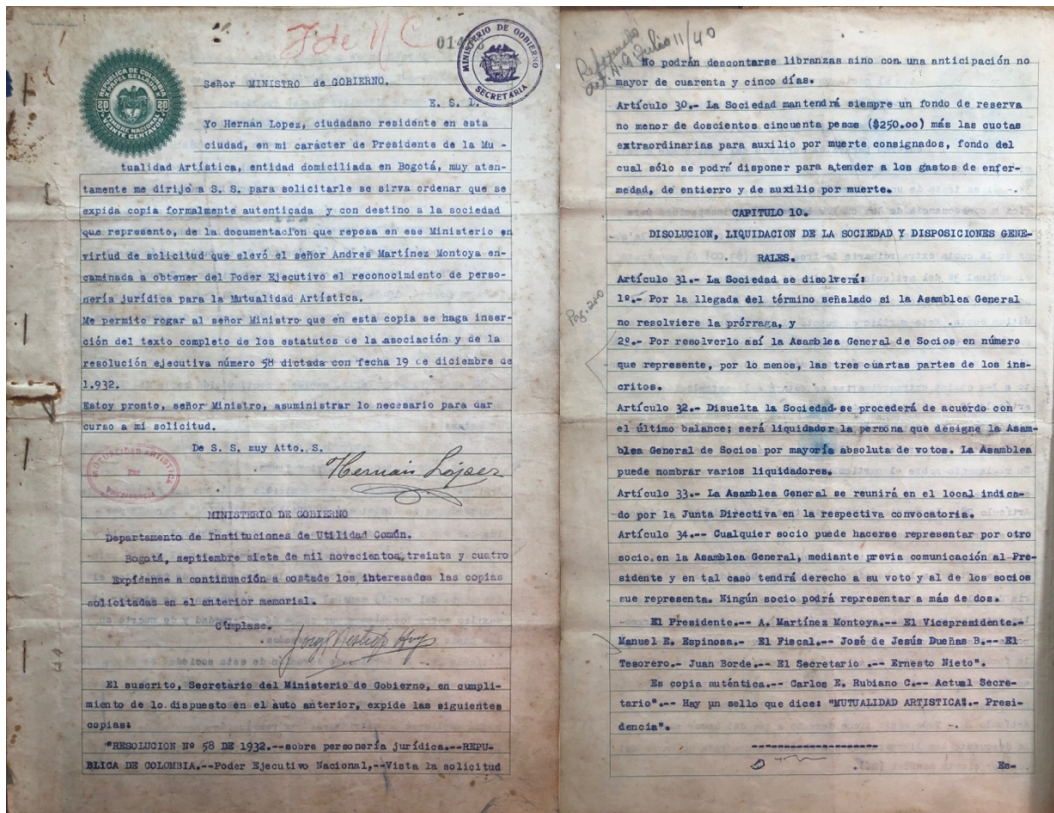 7 de N C
MINISTERIO DE GOBIERNO
SECRETARIA
REPUBLICA DE COLOMBIA
PAPEL SELLADO
20 20
TIMBRE NACIONAL
VEINTE CENTAVOS
Señor MINISTRO de GOBIERNO.
E. S. D.
Yo Hernán Lopez, ciudadano residente en esta
ciudad, en mi carácter de Presidente de la Mu -
tualidad Artística, entidad domiciliada en Bogotá, muy aten-
tamente me dirijo a S. S. para solicitarle se sirva ordenar que se
expida copia formalmente autenticada y con destino a la sociedad
que represento, de la documentacion que reposa en ese Ministerio en
virtud de solicitud que elevó el señor Andres Martínez Montoya en-
caminada a obtener del Poder Ejecutivo el reconocimiento de perso-
nería jurídica para la Mutualidad Artística.
Me permito rogar al señor Ministro que en esta copia se haga inser-
ción del texto completo de los estatutos de la asociación y de la
resolución ejecutiva número 58 dictada con fecha 19 de diciembre de
1.932.
Estoy pronto, señor Ministro, asuministrar lo necesario para dar
curso a mi solicitud.
De S. S. muy Atto. S.
Hernán López
MUTUALIDAD ARTISTICA
PRESIDENCIA
MINISTERIO DE GOBIERNO
Departamento de Instituciones de Utilidad Común.
Bogotá, septiembre siete de mil novecientos treinta y cuatro
Expídanse a continuación a costade los interesados las copias
solicitadas en el anterior memorial.
Cúmplase.
El suscrito, Secretario del Ministerio de Gobierno, en cumpli-
miento de lo dispuesto en el auto anterior, expide las siguientes
copias:
"RESOLUCION Nº 58 DE 1932.--sobre personería jurídica.--REPU-
BLICA DE COLOMBIA.--Poder Ejecutivo Nacional,--Vista la solicitud
Reformado
Julio 11/40
No podrán descontarse libranzas sino con una anticipación no
mayor de cuarenta y cinco días.
Artículo 30.- La Sociedad mantendrá siempre un fondo de reserva
no menor de doscientos cincuenta pesos ($250.00) más las cuotas
extraordinarias para auxilio por muerte consignados, fondo del
cual sólo se podrá disponer para atender a los gastos de enfer-
medad, de entierro y de auxilio por muerte.
CAPITULO 10.
DISOLUCION, LIQUIDACION DE LA SOCIEDAD Y DISPOSICIONES GENE-
RALES.
Artículo 31.- La Sociedad se disolverá:
1º.- Por la llegada del término señalado si la Asamblea General
no resolviere la prórraga, y
Pág. 200
2º.- Por resolverlo así la Asamblea General de Socios en número
que represente, por lo menos, las tres cuartas partes de los ins-
critos.
Artículo 32.- Disuelta la Sociedad se procederá de acuerdo con
el último balance; será liquidador la persona que designe la Asam-
blea General de Socios por mayoría absoluta de votos. La Asamblea
puede nombrar varios liquidadores.
Artículo 33.- La Asamblea General se reunirá en el local indica-
do por la Junta Directiva en la respectiva convocatoria.
Artículo 34.-- Cualquier socio puede hacerse representar por otro
socio, en la Asamblea General, mediante previa comunicación al Pre-
sidente y en tal caso tendrá derecho a su voto y al de los socios
que representa. Ningún socio podrá representar a más de dos.
El Presidente.-- A. Martínez Montoya.-- El Vicepresidente.--
Manuel E. Espinosa.- El Fiscal.-- José de Jesús Dueñas B.-- El
Tesorero.- Juan Borde.-- El Secretario .-- Ernesto Nieto".
Es copia auténtica.-- Carlos E. Rubiano C.-- Actual Secre-
tario".-- Hay un sello que dice: "MUTUALIDAD ARTISTICA".- Presi-
dencia".
--------------------
Es-